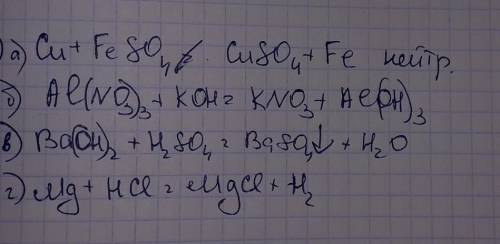 а) Cu + FeSO₄ ≠ CuSO₄ + Fe нейтр.
б) Al(NO₃)₃ + KOH = KNO₃ + Al(OH)₃
в) Ba(OH)₂ + H₂SO₄ = BaSO₄↓ + H₂O
г) Mg + HCl = MgCl + H₂